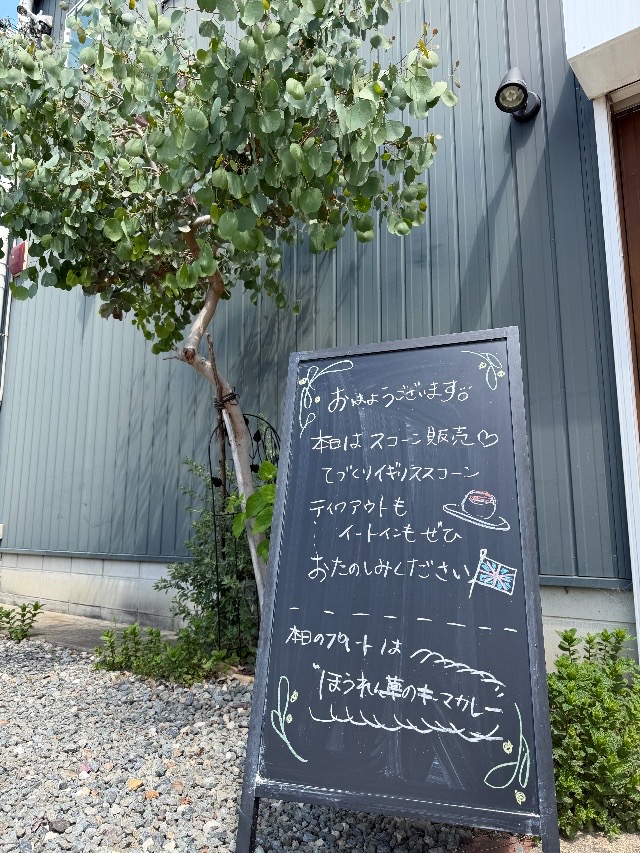 おはようございます。
本日は スコーン販売♡
てづくりイギリススコーン
テイクアウトも
イートインも ぜひ
おたのしみください
本日のプレートは
"ほうれん草のキーマカレー